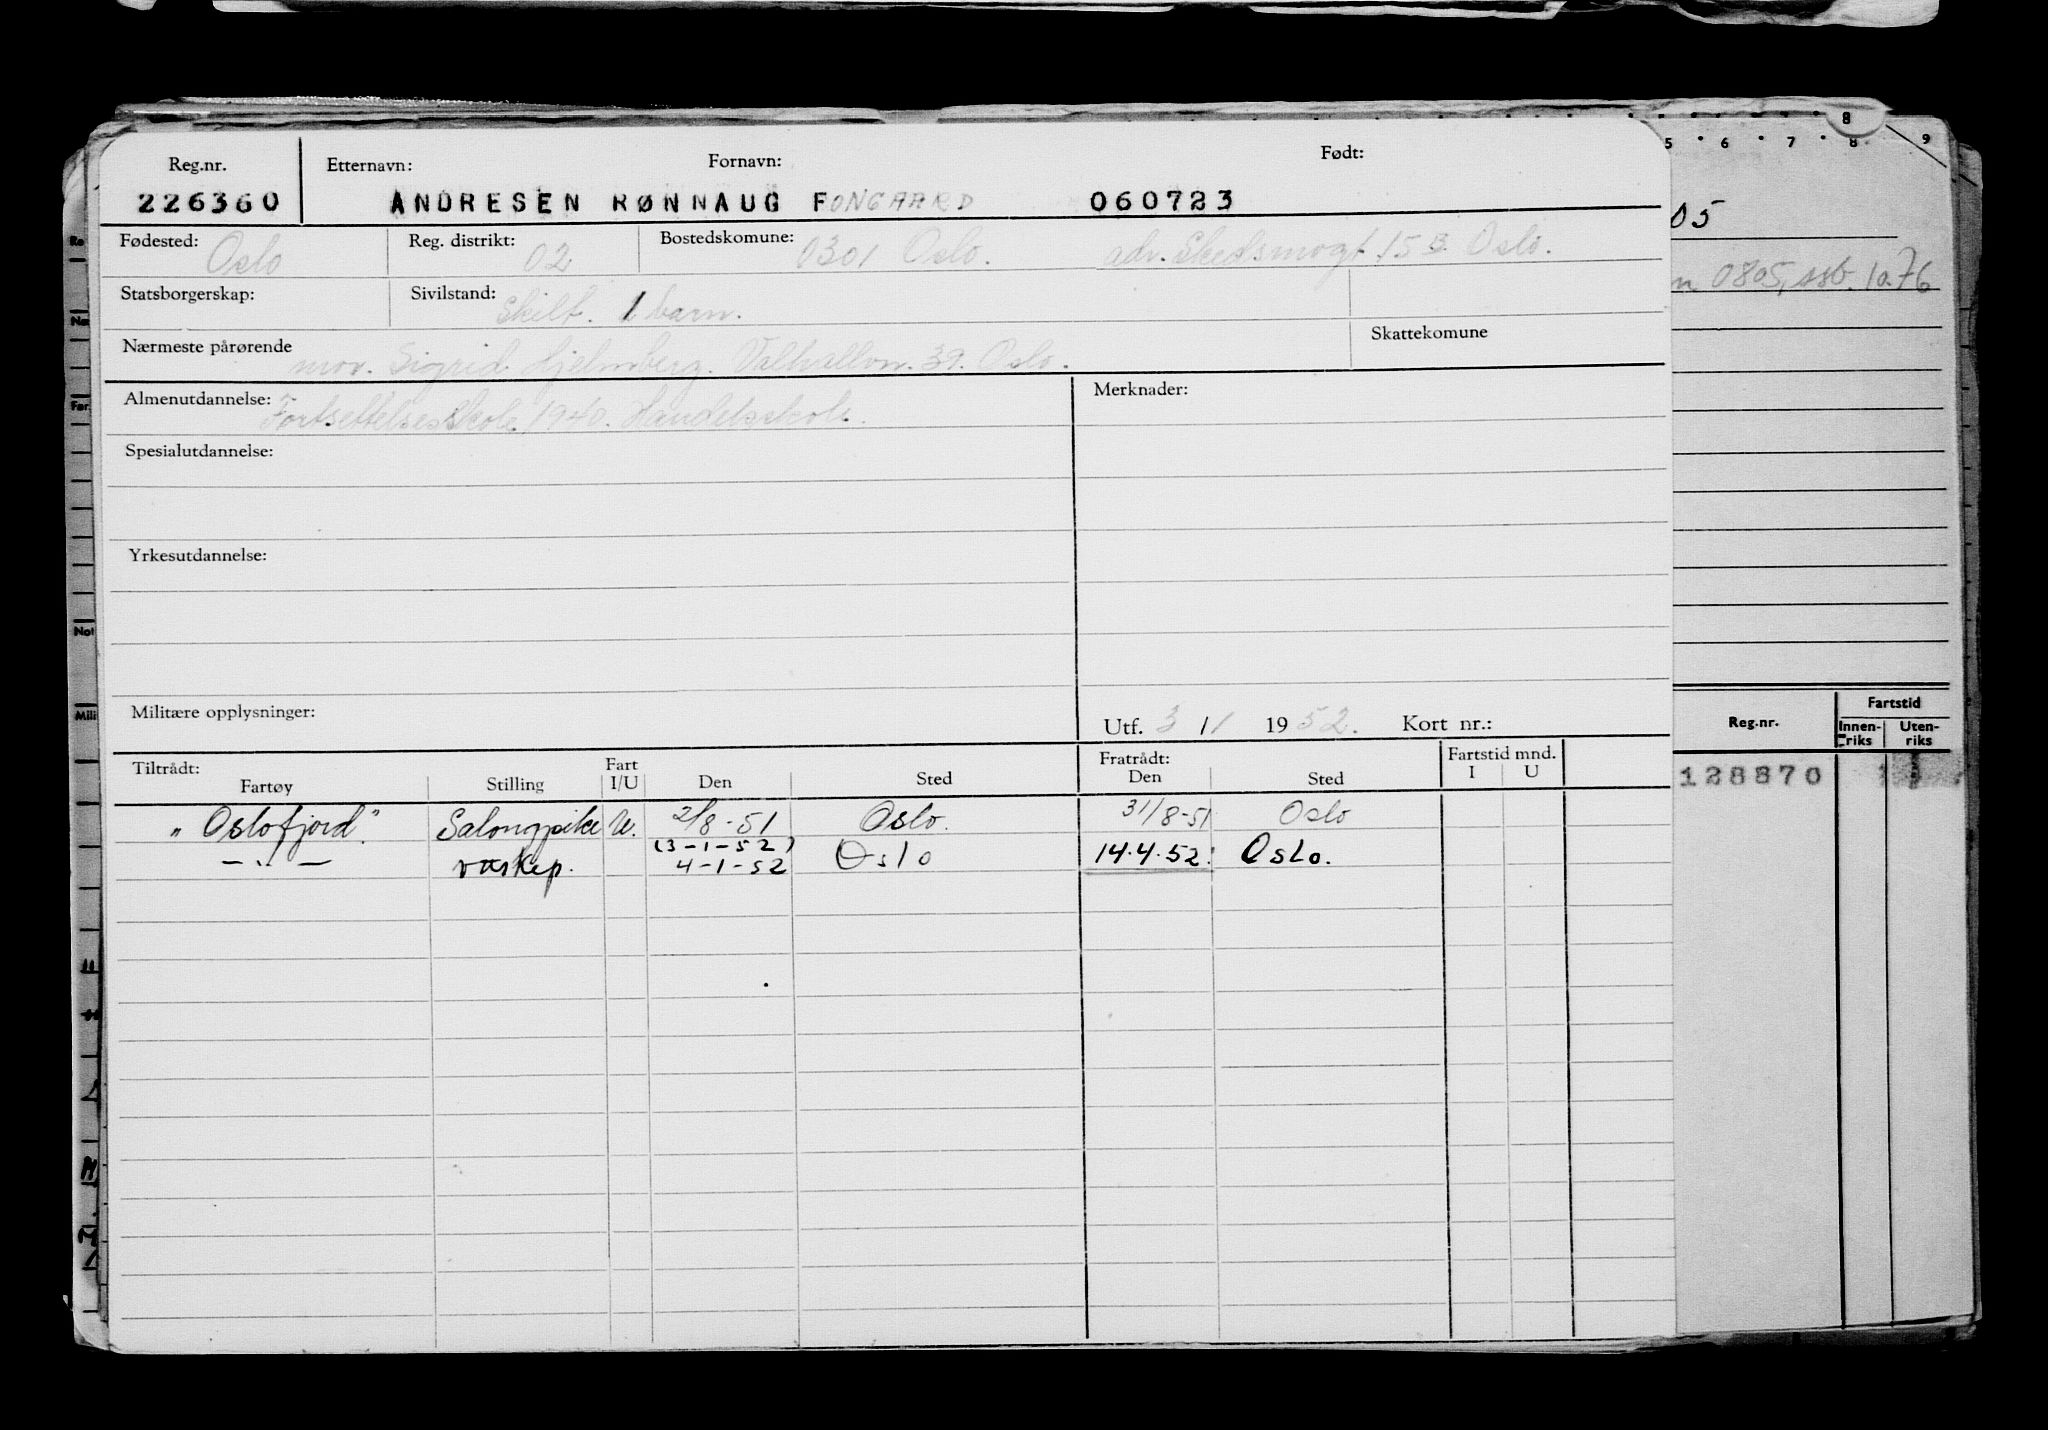 8
5 6 7 8 9
Reg.nr. Etternavn: Fornavn: Født:
226360 ANDRESEN RØNNAUG FONGAARD 060723
05
Fødested: Oslo Reg. distrikt: 02 Bostedskomune: 0301 Oslo. adr. Skedsmogt. 15 B Oslo.
0805, ssb. 10.76
Statsborgerskap: Sivilstand: Skilt. 1 barn.
Nærmeste pårørende mor. Sigrid Hjelmberg. Valhallvn. 39. Oslo. Skattekomune
Almenutdannelse: Fortsettelsesskole 1940. Handelsskole. Merknader:
Spesialutdannelse:
Yrkesutdannelse:
Militære opplysninger: Utf. 3 / 1 1952. Kort nr.:
Reg.nr. Fartstid
Innen-riks Uten-riks
128870
Tiltrådt: Fart Fratrådt: Fartstid mnd.
Fartøy Stilling I/U Den Sted Den Sted I U
"Oslofjord". Salongpike U. 2/8-51 Oslo. 31/8-51 Oslo
(3-1-52)
— " — vaskep. 4-1-52 Oslo 14.4.52. Oslo.